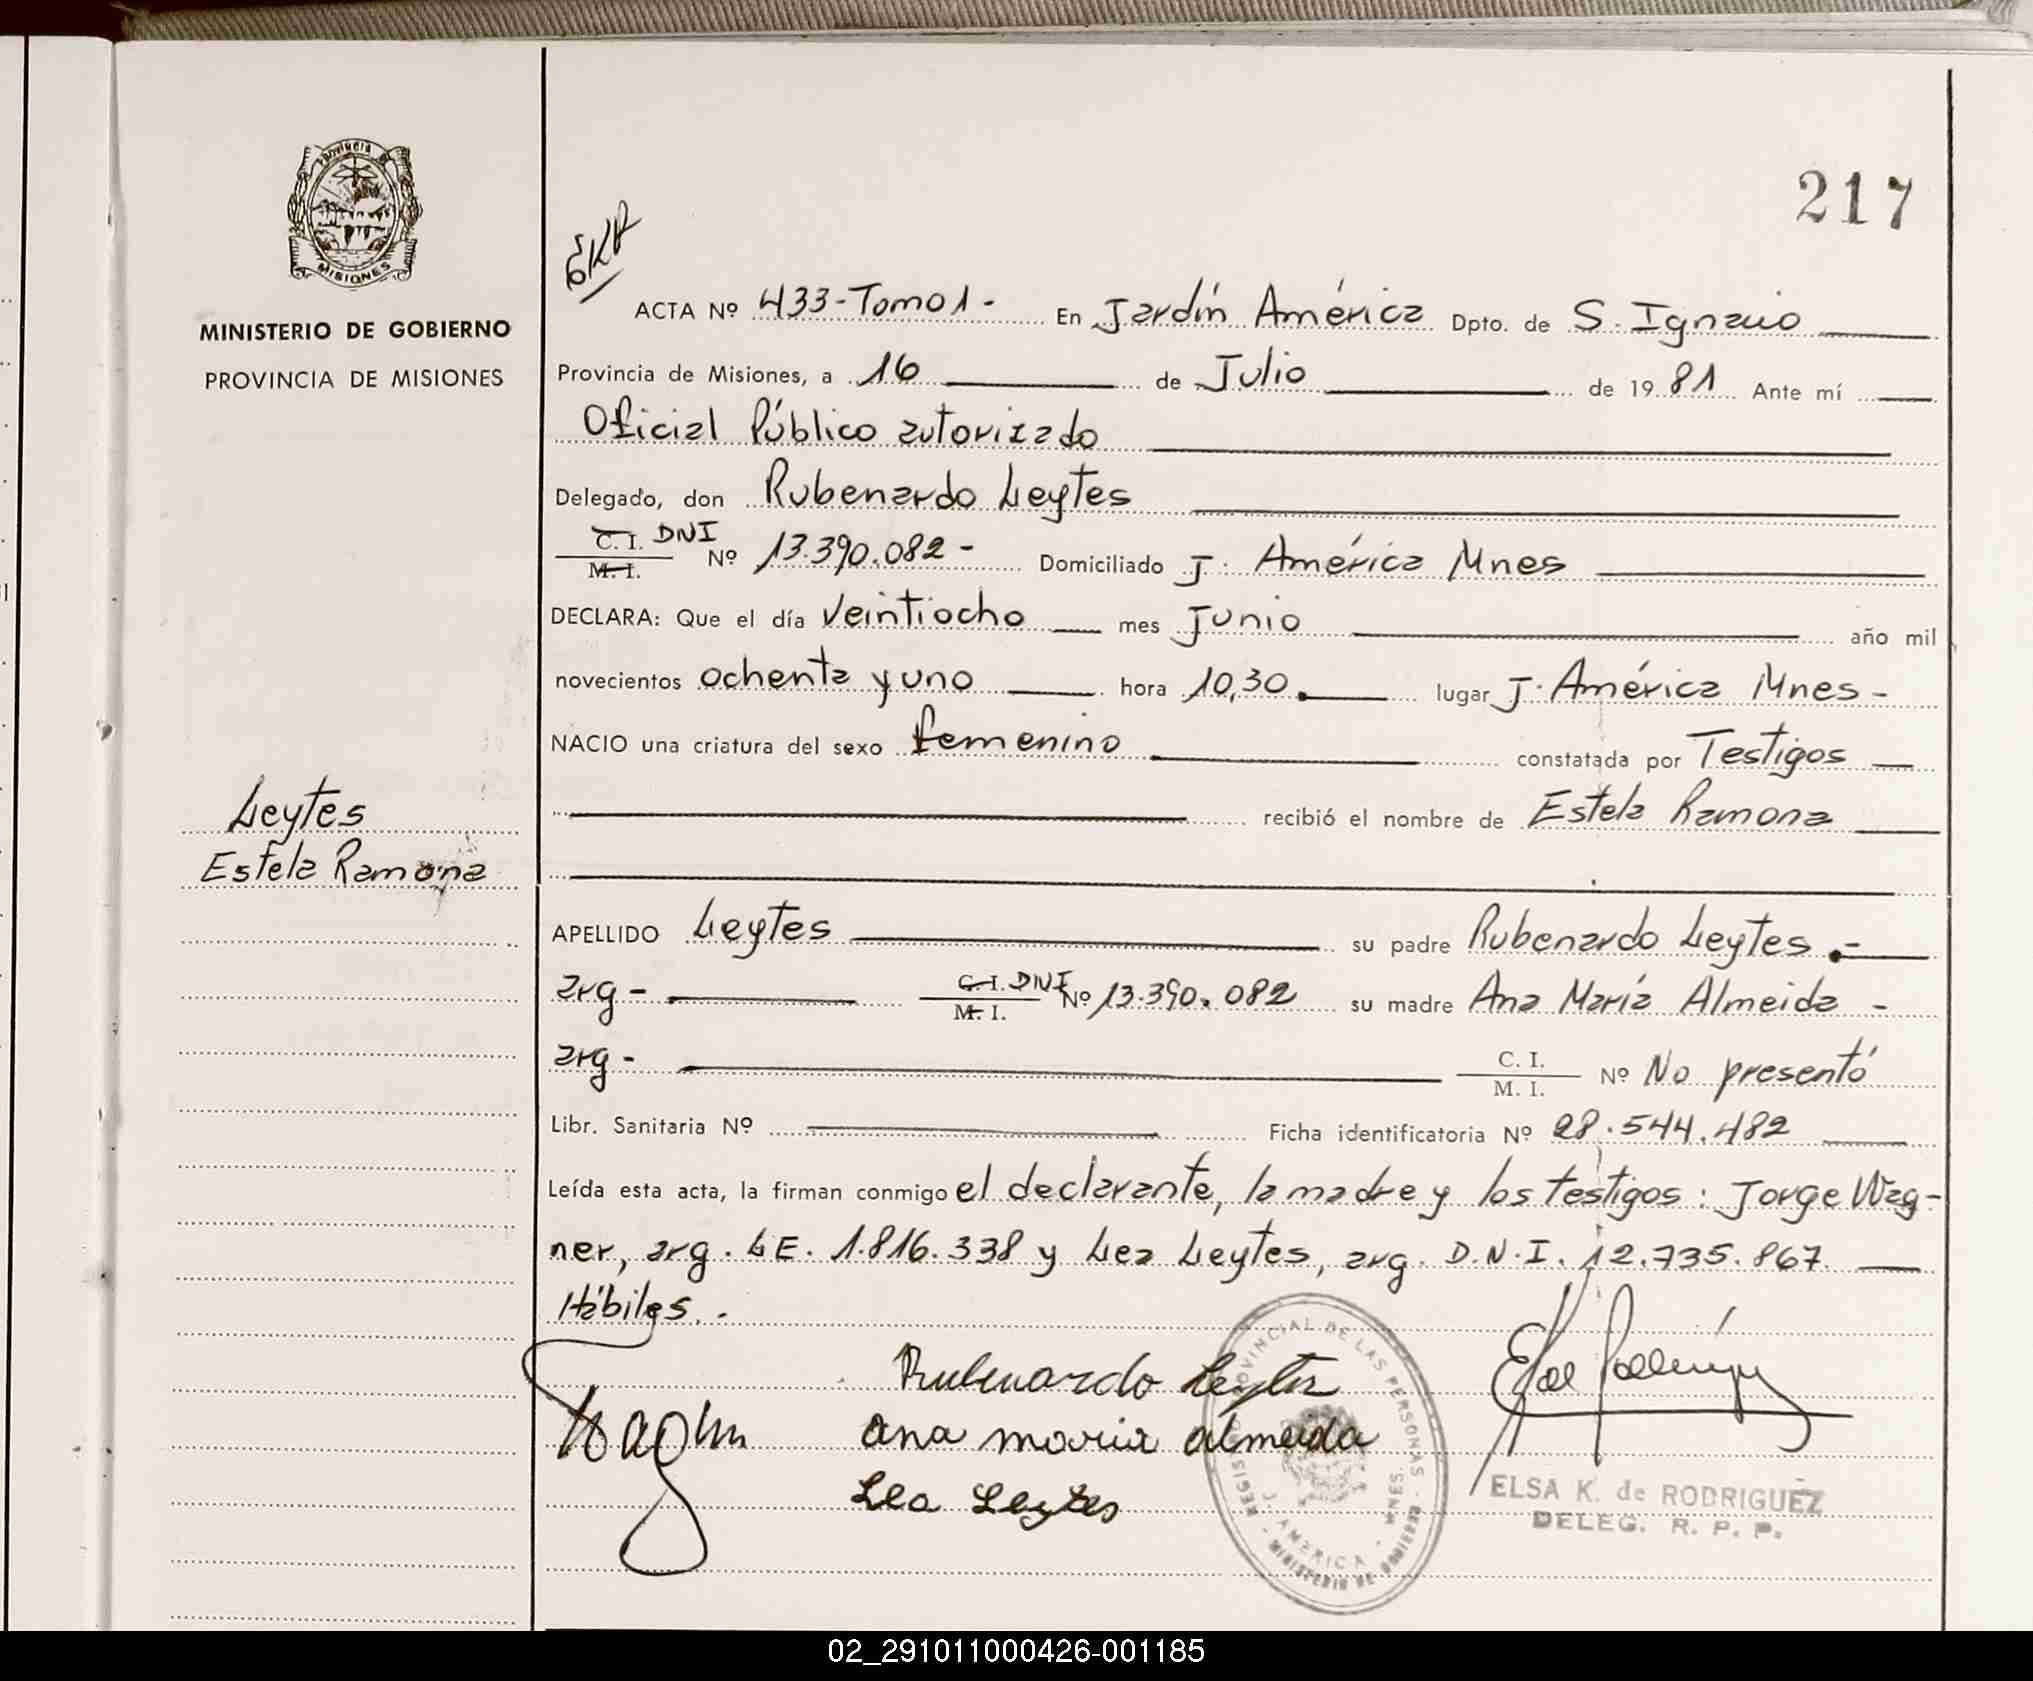 217
PROVINCIA DE
MISIONES
MINISTERIO DE GOBIERNO
PROVINCIA DE MISIONES
EKR
ACTA Nº 433-Tomo 1- En Jardín América Dpto. de S. Ignacio
Provincia de Misiones, a 16 de Julio de 1981 Ante mí
Oficial Público autorizado
Delegado, don Rubenardo Leytes
C. I. DNI
M. I. Nº 13.390.082- Domiciliado J. América Mnes
DECLARA: Que el día veintiocho mes Junio año mil
novecientos ochenta y uno hora 10,30. lugar J. América Mnes-
NACIO una criatura del sexo femenino constatada por Testigos
recibió el nombre de Estela Ramona
Leytes
Estela Ramona
APELLIDO Leytes su padre Rubenardo Leytes.-
arg- C. I. DNI
M. I. Nº 13.390.082 su madre Ana María Almeida -
arg- C. I.
M. I. Nº No presentó
Libr. Sanitaria Nº Ficha identificatoria Nº 28.544.482
Leída esta acta, la firman conmigo el declarante, la madre y los testigos: Jorge Wag-
ner, arg. LE. 1.816.338 y Lea Leytes, arg. D.N.I. 12.735.867.
Hábiles.-
Rubenardo Leytes
ana maria almeida
Lea Leytes
REGISTRO PROVINCIAL DE LAS PERSONAS
J. AMERICA - MNES.
MINISTERIO DE GOBIERNO
ELSA K. de RODRIGUEZ
DELEG. R. P. P.
02_291011000426-001185